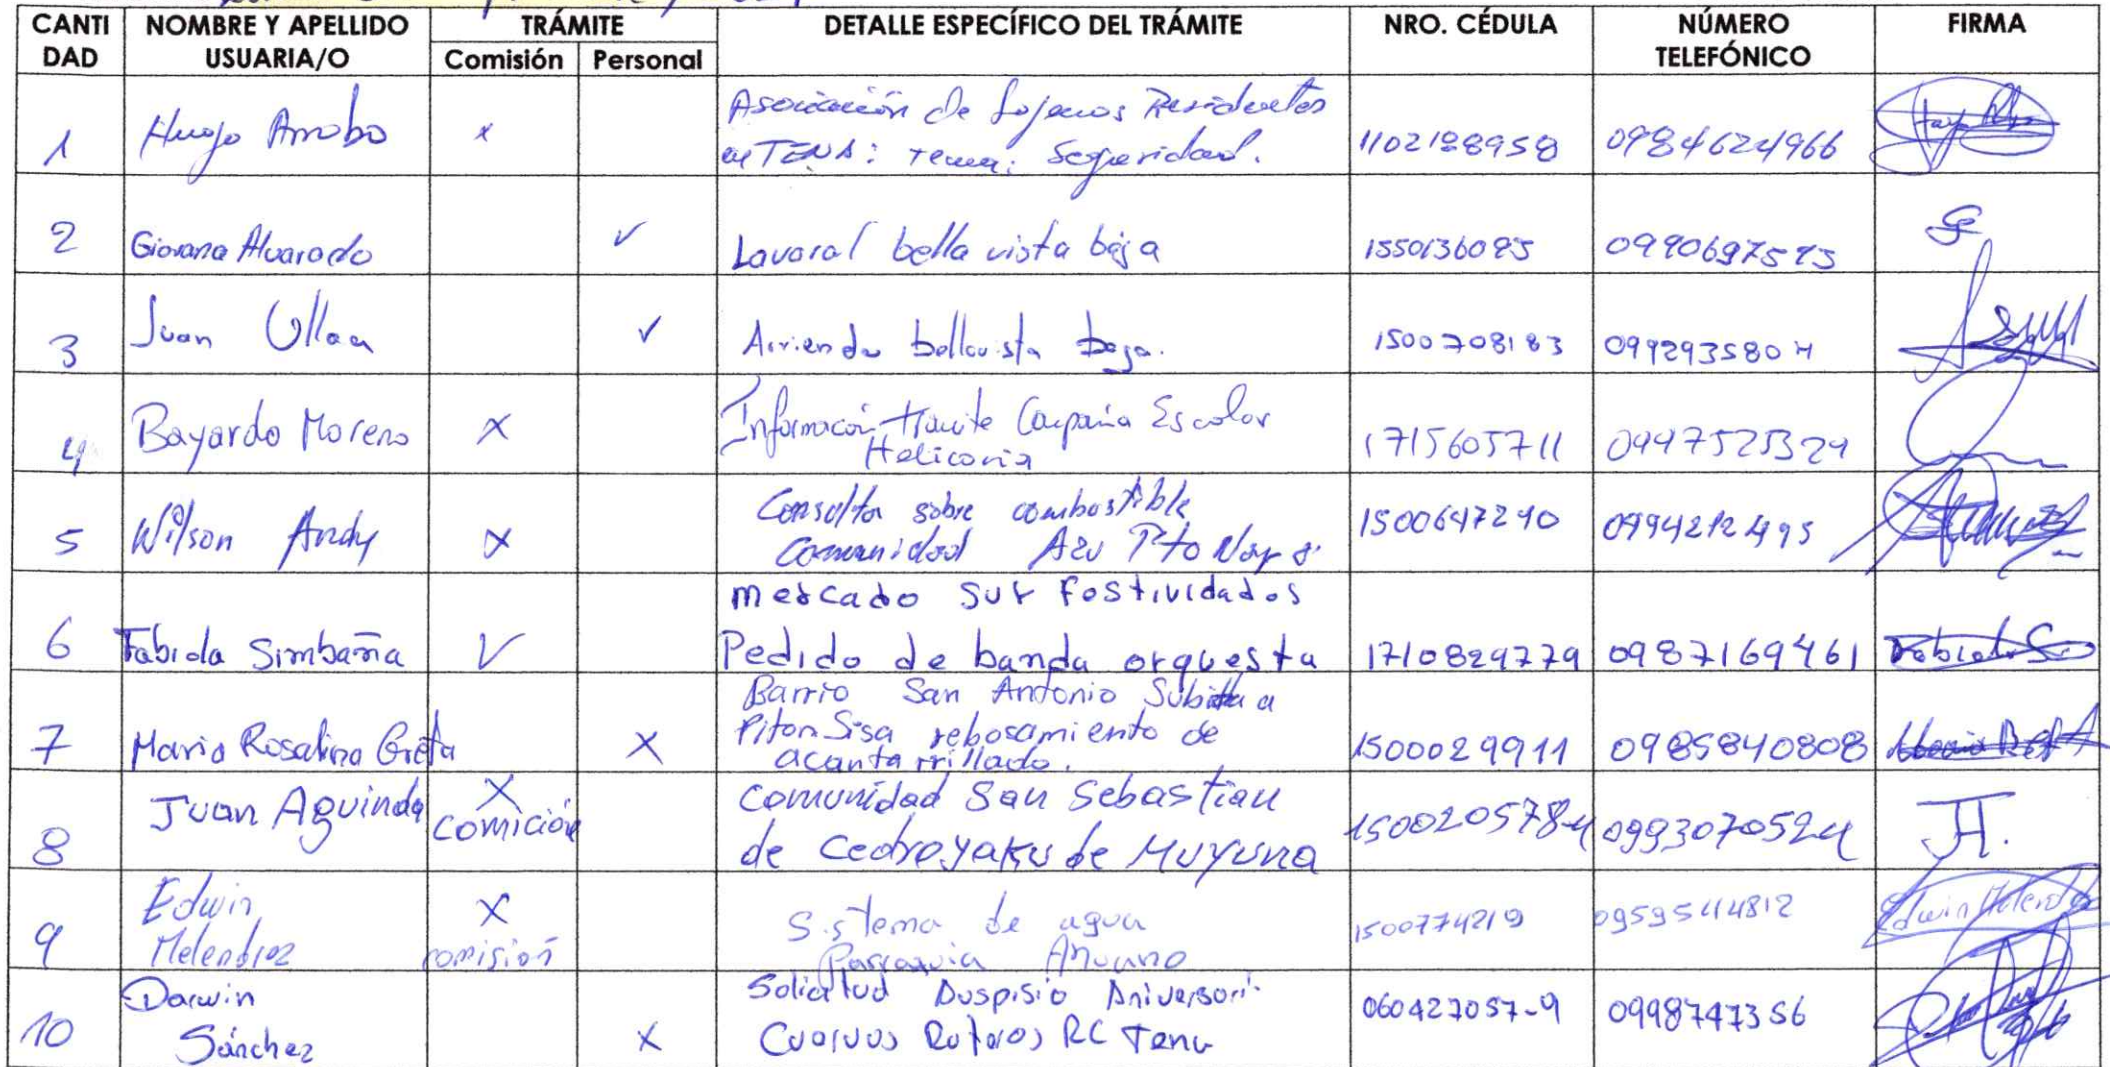 CANTIDAD NOMBRE Y APELLIDO USUARIA/O TRÁMITE Comisión Personal DETALLE ESPECÍFICO DEL TRÁMITE NRO. CÉDULA NÚMERO TELEFÓNICO FIRMA
1 Hugo Arrobo x Asociación de Lojanos Residentes
en TENA: tema: Seguridad. 1102188958 0984624966
2 Giovana Alvarado ✓ Lavaral bella vista baja 1550136095 0990697593
3 Juan Ulloa ✓ Arriendo bellavista baja. 1500708183 0992935804
4 Bayardo Moreno x Información tramite Campaña Escolar
Heliconia 1715605711 0997525329
5 Wilson Andy x Consulta sobre combustible
comunidad Pto Napo 1500647290 0994212495
mercado sur festividades
6 Fabiola Simbaña ✓ Pedido de banda orquesta 1710829779 0987169461
Barrio San Antonio Subida a
7 Maria Rosalina Grefa x Piton Sisa rebosamiento de
acantarrillado. 1500029911 0985840808
8 Juan Aguinda x comición comunidad San Sebastian
de Cedroyaku de Muyuna 1500205784 0993070524 JA.
9 Edwin Melendrez x comisión Sistema de agua
Parroquia Ahuano 1500774219 0959544812 Edwin Melendrez
10 Darwin Sánchez x Solicitud Auspisio Aniversari
Cuervos Ruteros RC Tena 060427057-9 0998747356